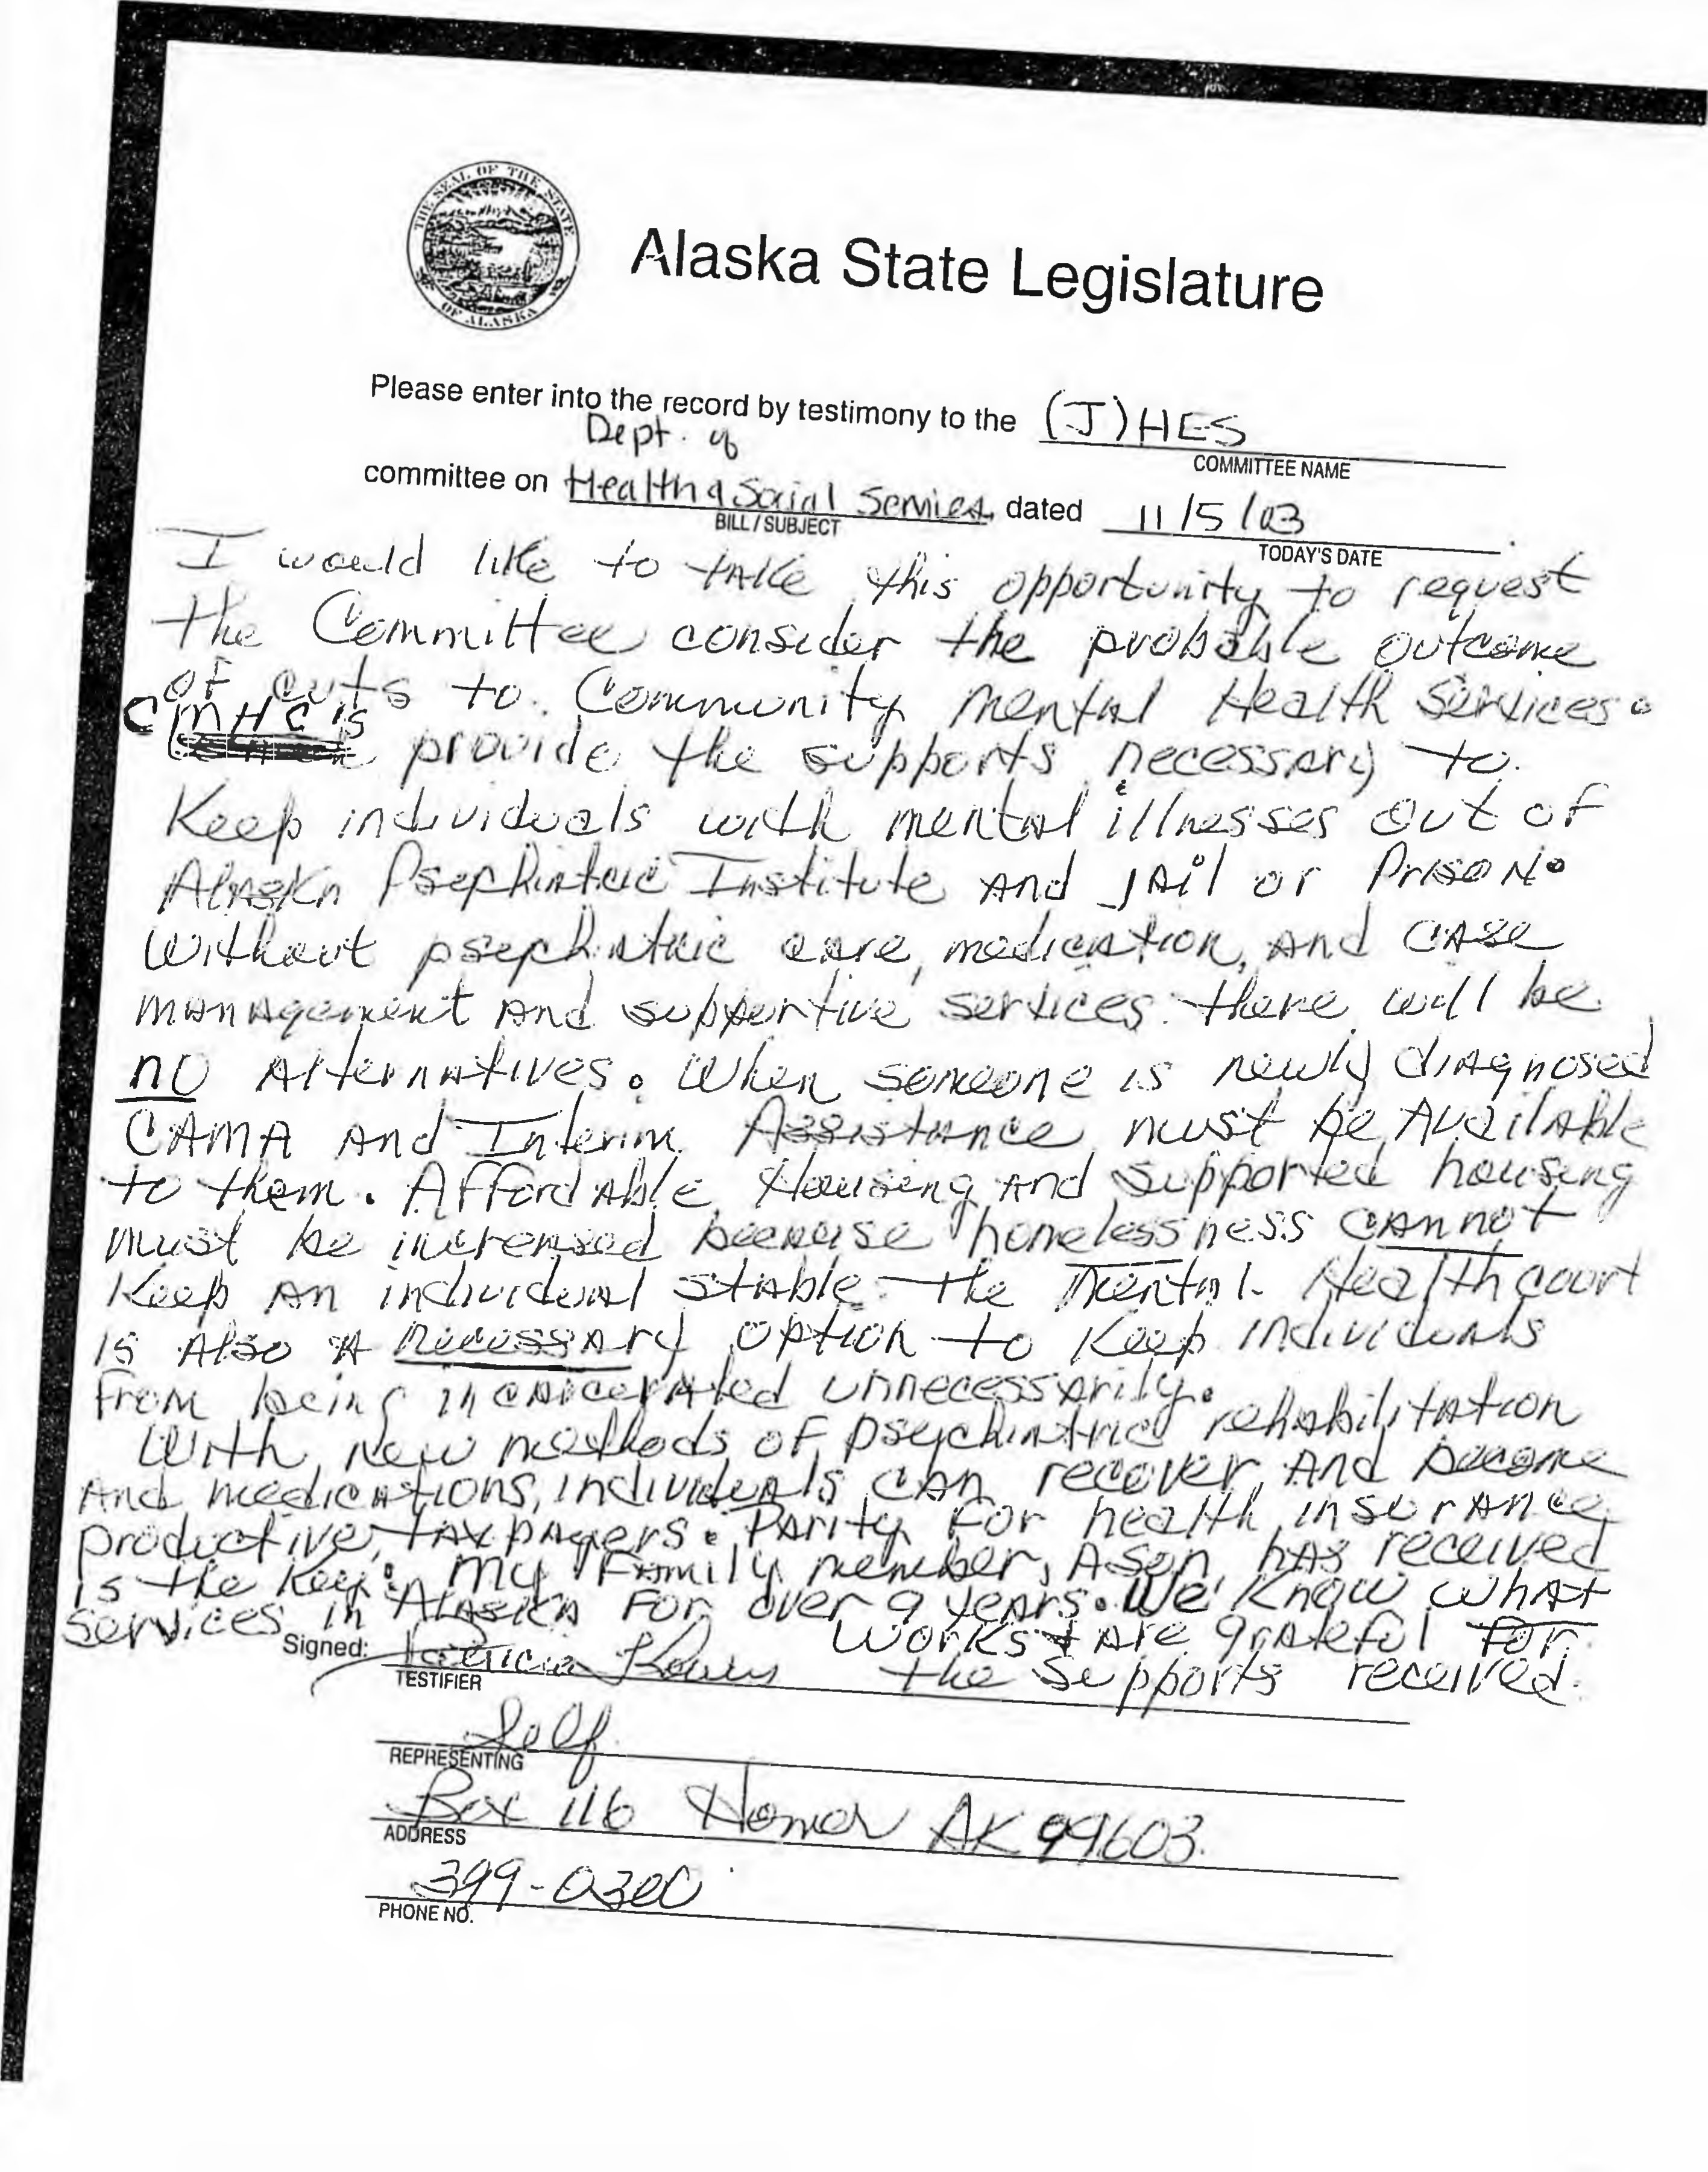 THE SEAL OF THE STATE OF ALASKA
Alaska State Legislature
Please enter into the record by testimony to the (J) HES
COMMITTEE NAME
Dept. of
committee on Health & Social Services, dated 11/5/03.
BILL / SUBJECT
TODAY'S DATE
I would like to take this opportunity to request
the Committee consider the probable outcome
of cuts to Community Mental Health Services.
CMHC's provide the supports necessary to
Keep individuals with mental illnesses out of
Alaska Psychiatric Institute and jail or Prison.
Without psychiatric care, medication, and case
management and supportive services there will be
no Alternatives. When someone is newly diagnosed
CAMA and Interim Assistance must be Available
to them. Affordable Housing and supported housing
must be increased because homelessness cannot
Keep an individual stable. The Mental Health court
is Also a necessary option to Keep individuals
From being incarcerated unnecessarily.
With New methods of psychiatric rehabilitation
And medications, individuals can recover And become
productive, taxpayers. Parity For health insurance
is the Key. My Family member, A Son, has received
services in Alaska For over 9 years. We Know what
works & Are grateful For
the Supports received.
Signed: Patricia
TESTIFIER
Self
REPRESENTING
Box 116 Homer AK 99603.
ADDRESS
399-0300
PHONE NO.